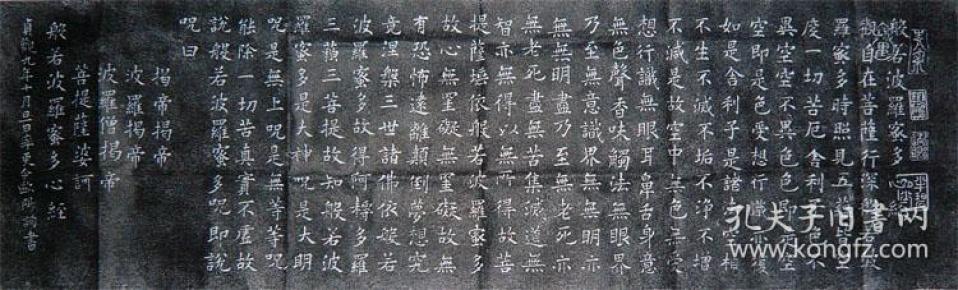 般若波羅蜜多心經
觀自在菩薩行深般若波
羅蜜多時照見五蘊皆空
度一切苦厄舍利子色不
異空空不異色色即是空
空即是色受想行識亦復
如是舍利子是諸法空相
不生不滅不垢不淨不增
不減是故空中無色無受
想行識無眼耳鼻舌身意
無色聲香味觸法無眼界
乃至無意識界無無明亦
無無明盡乃至無老死亦
無老死盡無苦集滅道無
智亦無得以無所得故菩
提薩埵依般若波羅蜜多
故心無罣礙無罣礙故無
有恐怖遠離顛倒夢想究
竟涅槃三世諸佛依般若
波羅蜜多故得阿耨多羅
三藐三菩提故知般若波
羅蜜多是大神呪是大明
呪是無上呪是無等等呪
能除一切苦真實不虛故
說般若波羅蜜多呪即說
呪曰
揭帝揭帝
波羅揭帝
波羅僧揭帝
菩提薩婆訶
般若波羅蜜多心經
貞觀九年十月旦日率更令歐陽詢書
孔夫子旧书网
www.kongfz.com